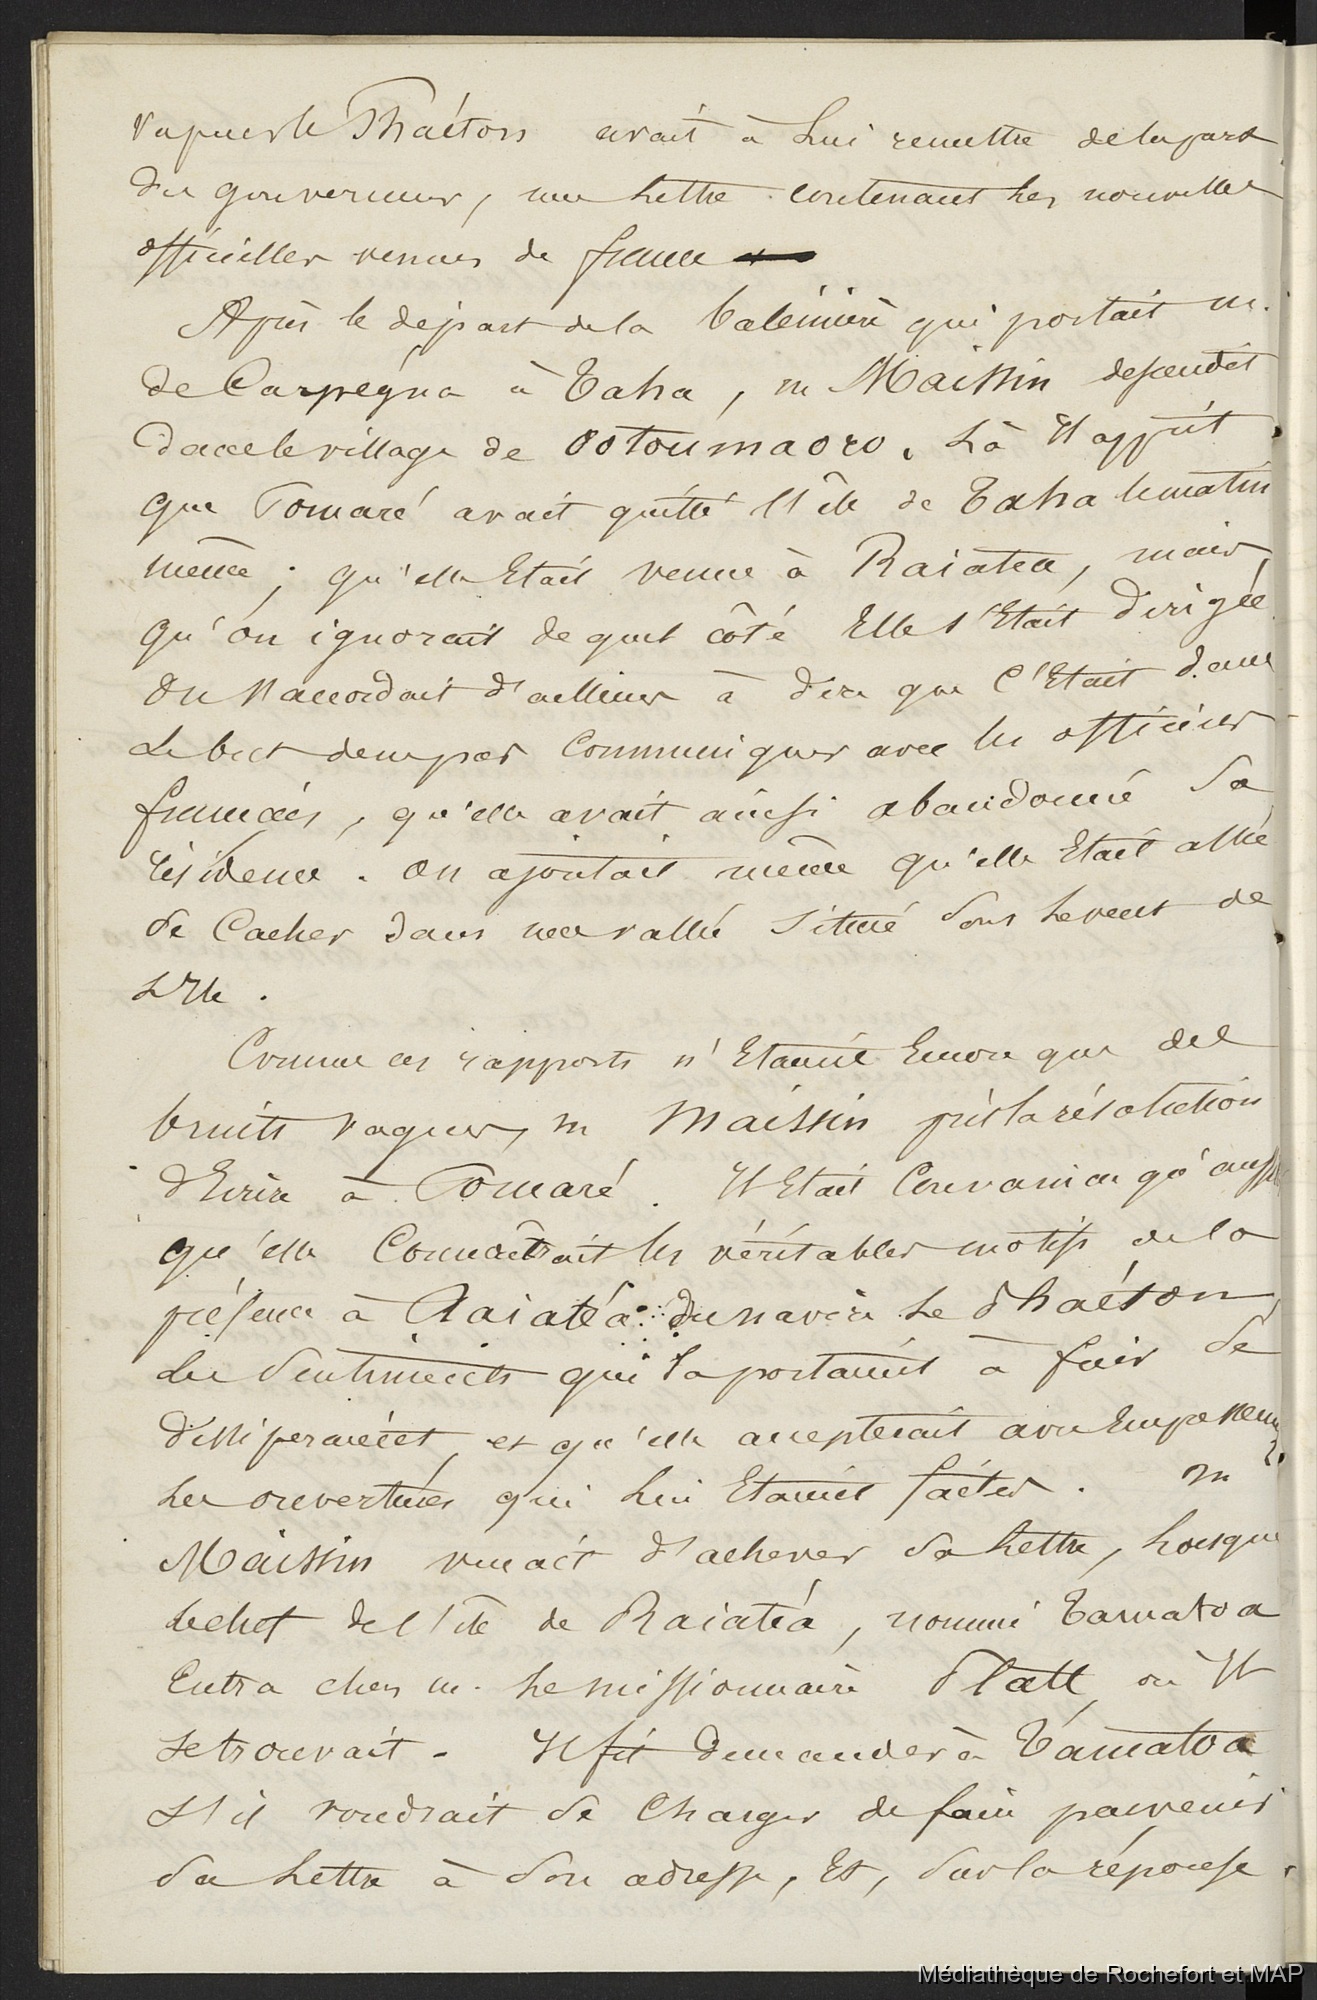 vapeur le Phaéton avait à Lui remettre de la part
du gouverneur, une Lettre contenant Les nouvelles
officielles venues de france
Après le départ de la baleinière qui portait m.
de Carpégna à Taha, m Maissin descendit
dans le village de Ootoumaoro. Là Il apprit
que Pomaré avait quitté l'île de Taha le matin
même ; qu'elle Etait venue à Raiatea, mais
qu'on ignorait de quel côté Elle s'Etait dirigée
On s'accordait d'ailleurs à dire que C'Etait dans
Le but de ne pas Communiquer avec les officiers
français, qu'elle avait ainsi abandonné Sa
résidence. On ajoutait même qu'elle Etait allée
Se Cacher dans une vallée Située Sous Le vent de
L'Ile.
Comme ces rapports n'Etaient Encore que des
bruits vagues, m Maissin prit la résolution
d'Ecrire à Pomaré. Il Etait Convaincu qu'aussi
qu'elle Connaîtrait les véritables motifs de la
présence à Raiatéa du navire Le Phaéton
Les Sentiments qui la portaient à fuir Se
dissiperaient, et qu'elle accepterait avec Empressement
Les ouvertures qui Lui Etaient faites. m
Maissin venait d'achever Sa Lettre, Lorsque
Le chef de l'île de Raiatéa, nommé Tamatoa
Entra chez m. Le missionnaire Platt, où Il
Se trouvait. Il fit demander à Tamatoa
S'il voudrait Se Charger de faire parvenir
Sa Lettre à Son adresse, Et, Sur la réponse
Médiathèque de Rochefort et MAP